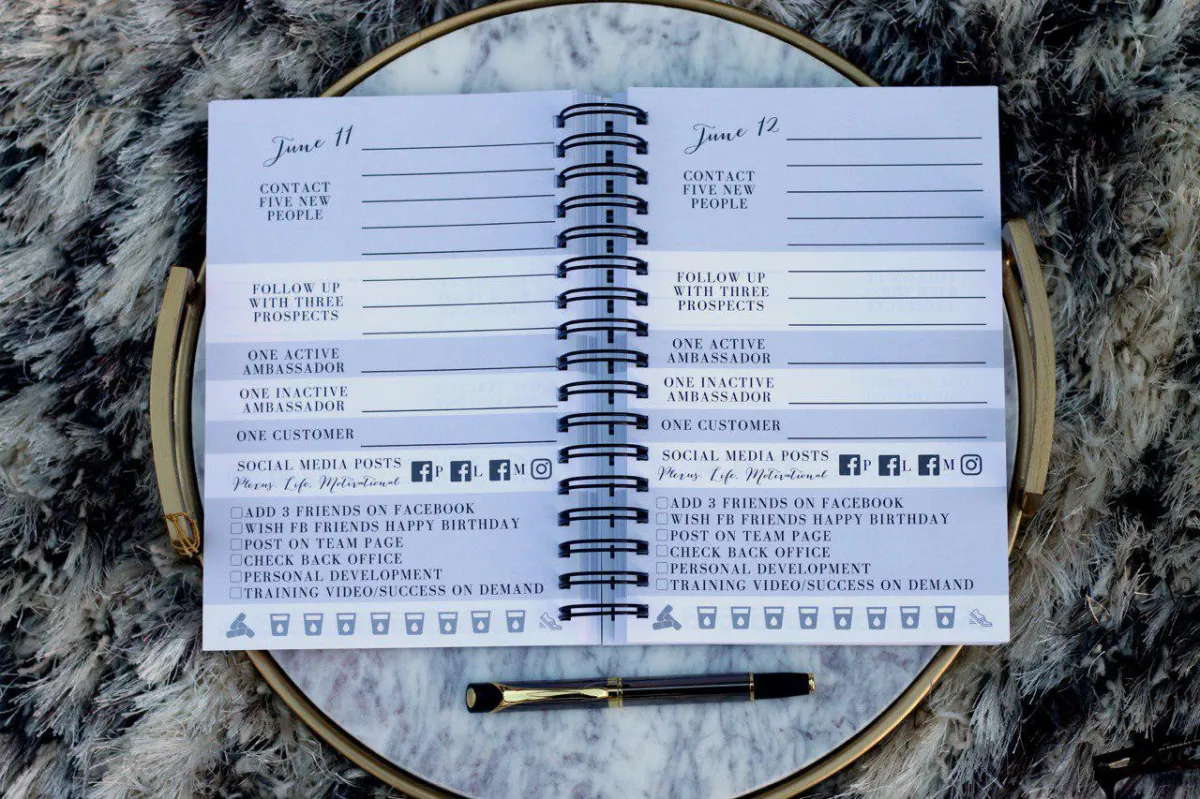 June 11
CONTACT
FIVE NEW
PEOPLE
FOLLOW UP
WITH THREE
PROSPECTS
ONE ACTIVE
AMBASSADOR
ONE INACTIVE
AMBASSADOR
ONE CUSTOMER
SOCIAL MEDIA POSTS
Plexus, Life, Motivational
P L M
ADD 3 FRIENDS ON FACEBOOK
WISH FB FRIENDS HAPPY BIRTHDAY
POST ON TEAM PAGE
CHECK BACK OFFICE
PERSONAL DEVELOPMENT
TRAINING VIDEO/SUCCESS ON DEMAND
June 12
CONTACT
FIVE NEW
PEOPLE
FOLLOW UP
WITH THREE
PROSPECTS
ONE ACTIVE
AMBASSADOR
ONE INACTIVE
AMBASSADOR
ONE CUSTOMER
SOCIAL MEDIA POSTS
Plexus, Life, Motivational
P L M
ADD 3 FRIENDS ON FACEBOOK
WISH FB FRIENDS HAPPY BIRTHDAY
POST ON TEAM PAGE
CHECK BACK OFFICE
PERSONAL DEVELOPMENT
TRAINING VIDEO/SUCCESS ON DEMAND